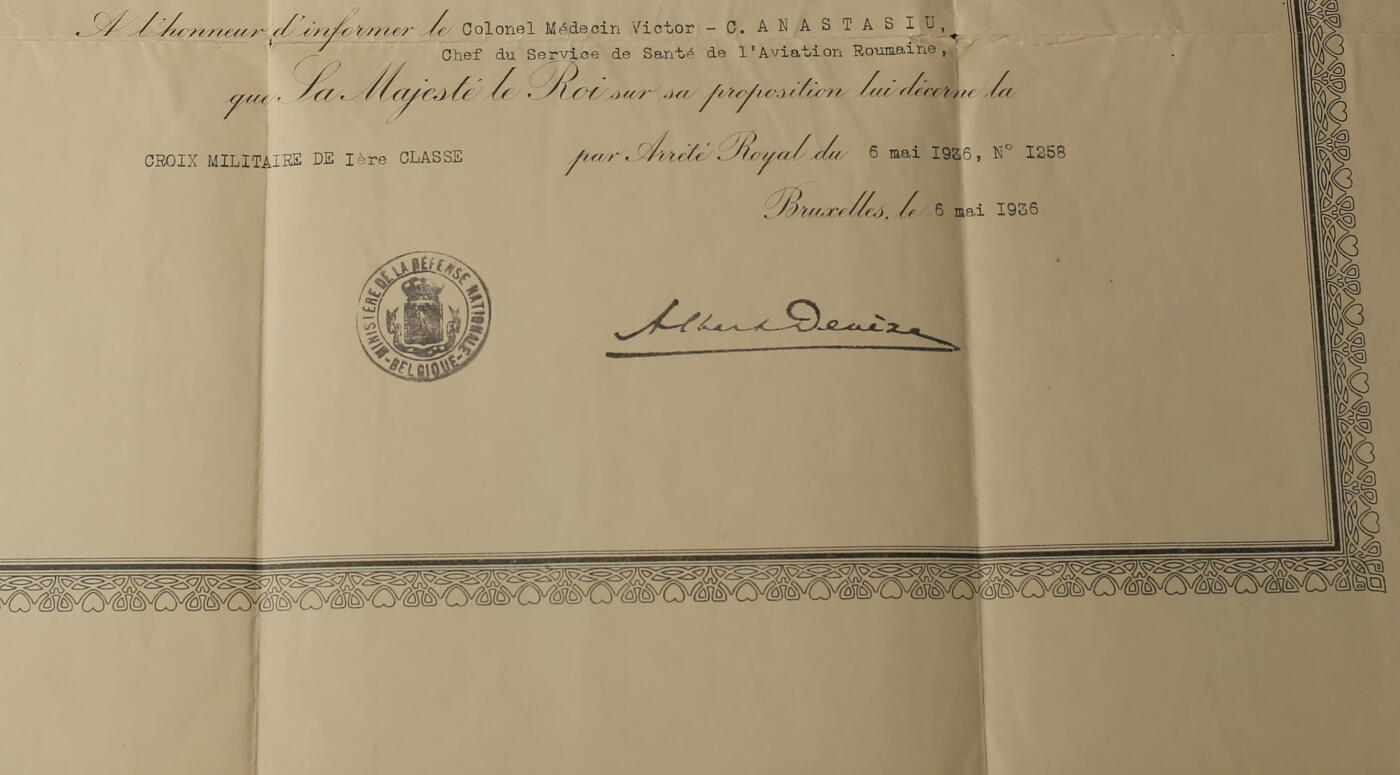 A l'honneur d'informer le Colonel Médecin Victor - C. ANASTASIU,
Chef du Service de Santé de l'Aviation Roumaine,
que Sa Majesté le Roi sur sa proposition lui décerne la
CROIX MILITAIRE DE Ière CLASSE par Arrêté Royal du 6 mai I936, N° I258
Bruxelles, le 6 mai I936
MINISTÈRE DE LA DÉFENSE NATIONALE
-BELGIQUE-
Albert Devèze